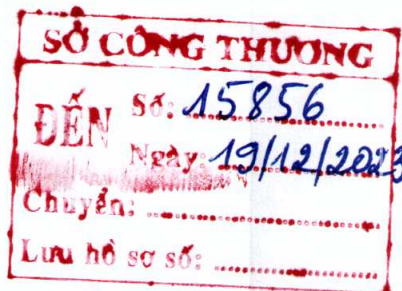 SỞ CÔNG THƯƠNG
ĐẾN Số: 15856
Ngày: 19/12/2023
Chuyển:
Lưu hồ sơ số: